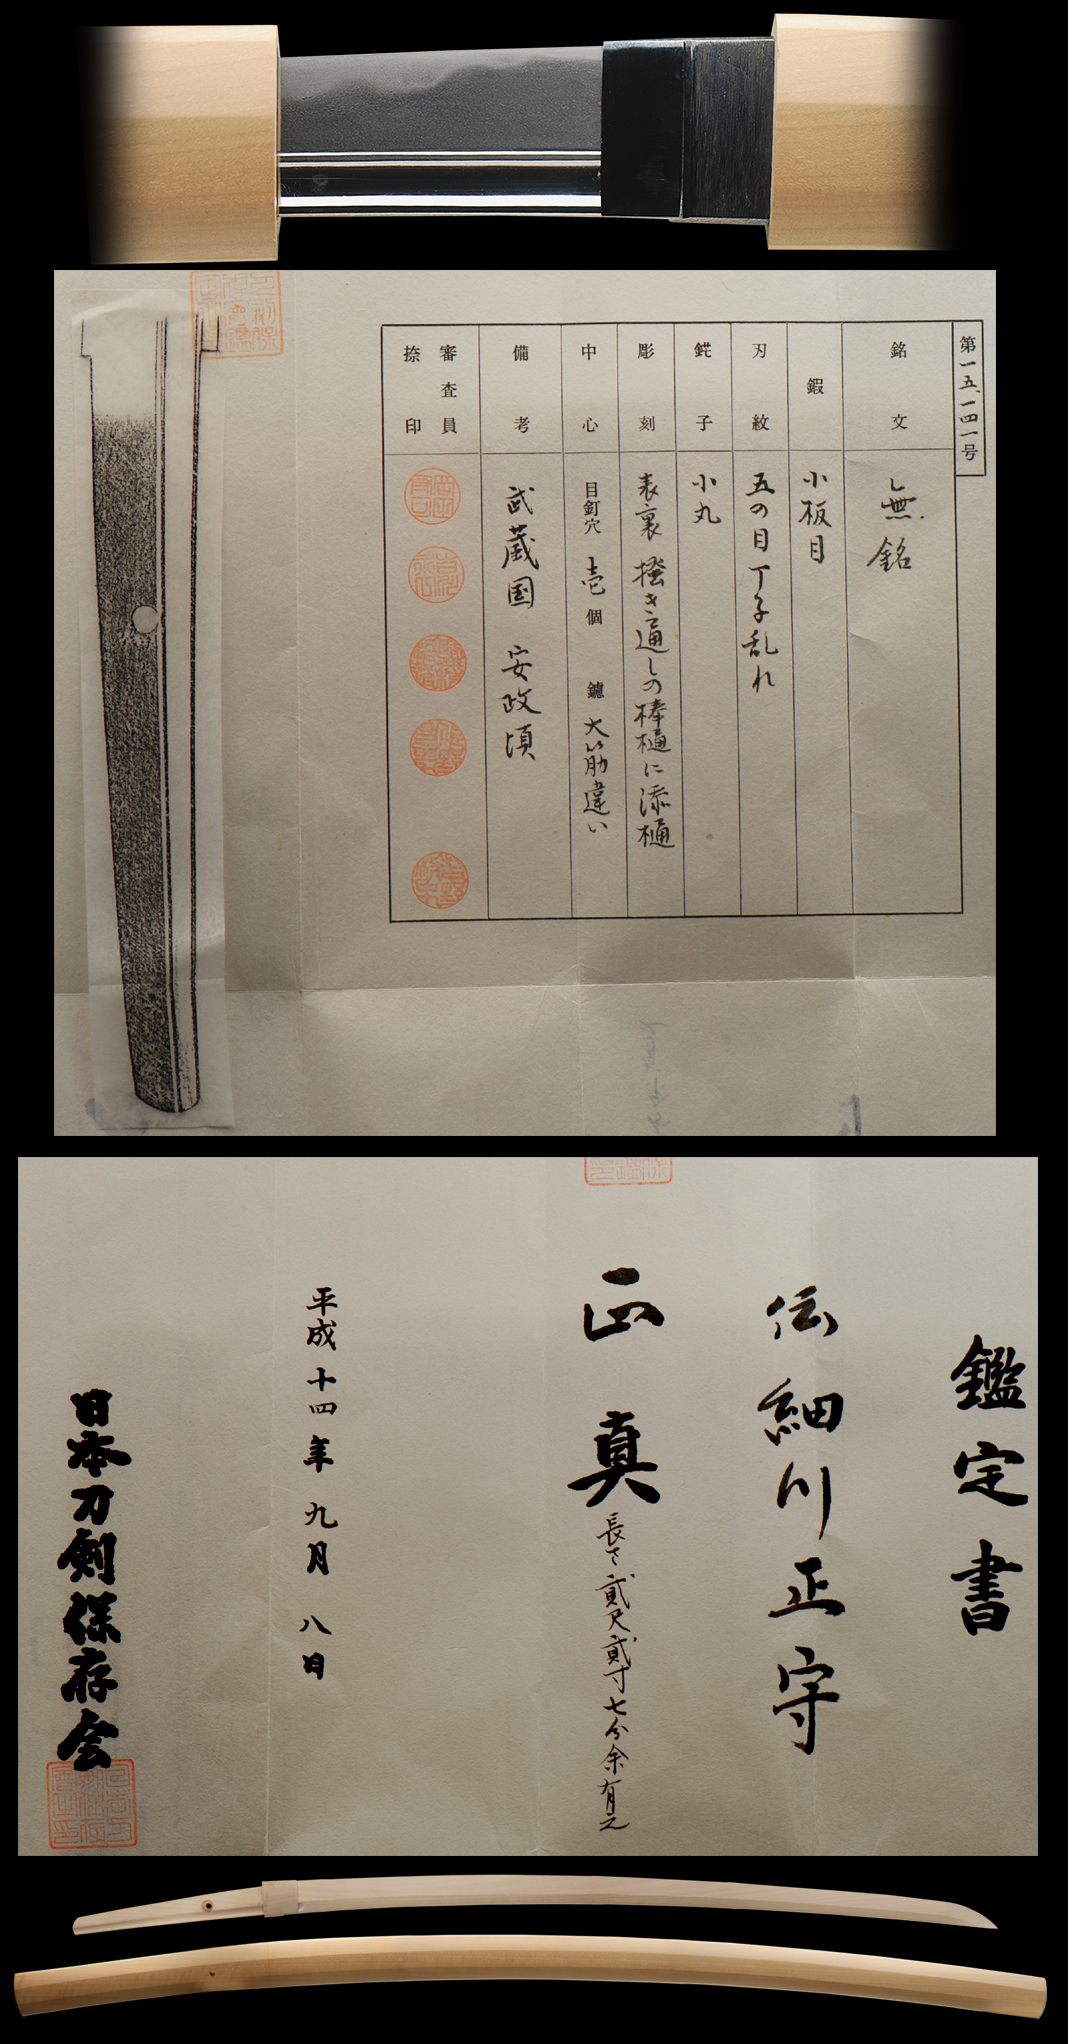 第一五、一四一号
銘文
無銘
鍜
小板目
刃紋
五の目丁子乱れ
鋩子
小丸
彫刻
表裏 掻き通しの棒樋に添樋
中心
目釘穴 壱個 鑢 大い筋違い
備考
武蔵国 安政頃
審査員
捺印
鑑定書
伝 細川正守
正真
長さ貳尺貳寸七分余有之
平成十四年九月八日
日本刀剣保存会